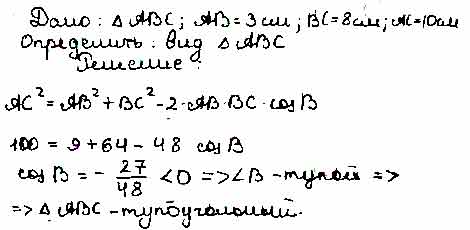 Дано: Δ ABC; AB=3см; BC=8см; AC=10см
Определить: вид Δ ABC
Решение:
AC² = AB² + BC² - 2·AB·BC·cosB
100 = 9+64 - 48 cosB
cosB = - 27/48 < 0 => ∠B - тупой =>
=> Δ ABC - тупоугольный.